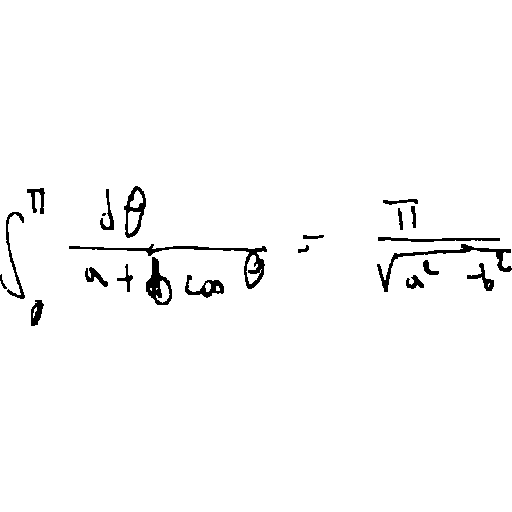 ∫₀^π dθ / (a + b cos θ) = π / √(a² - b²)